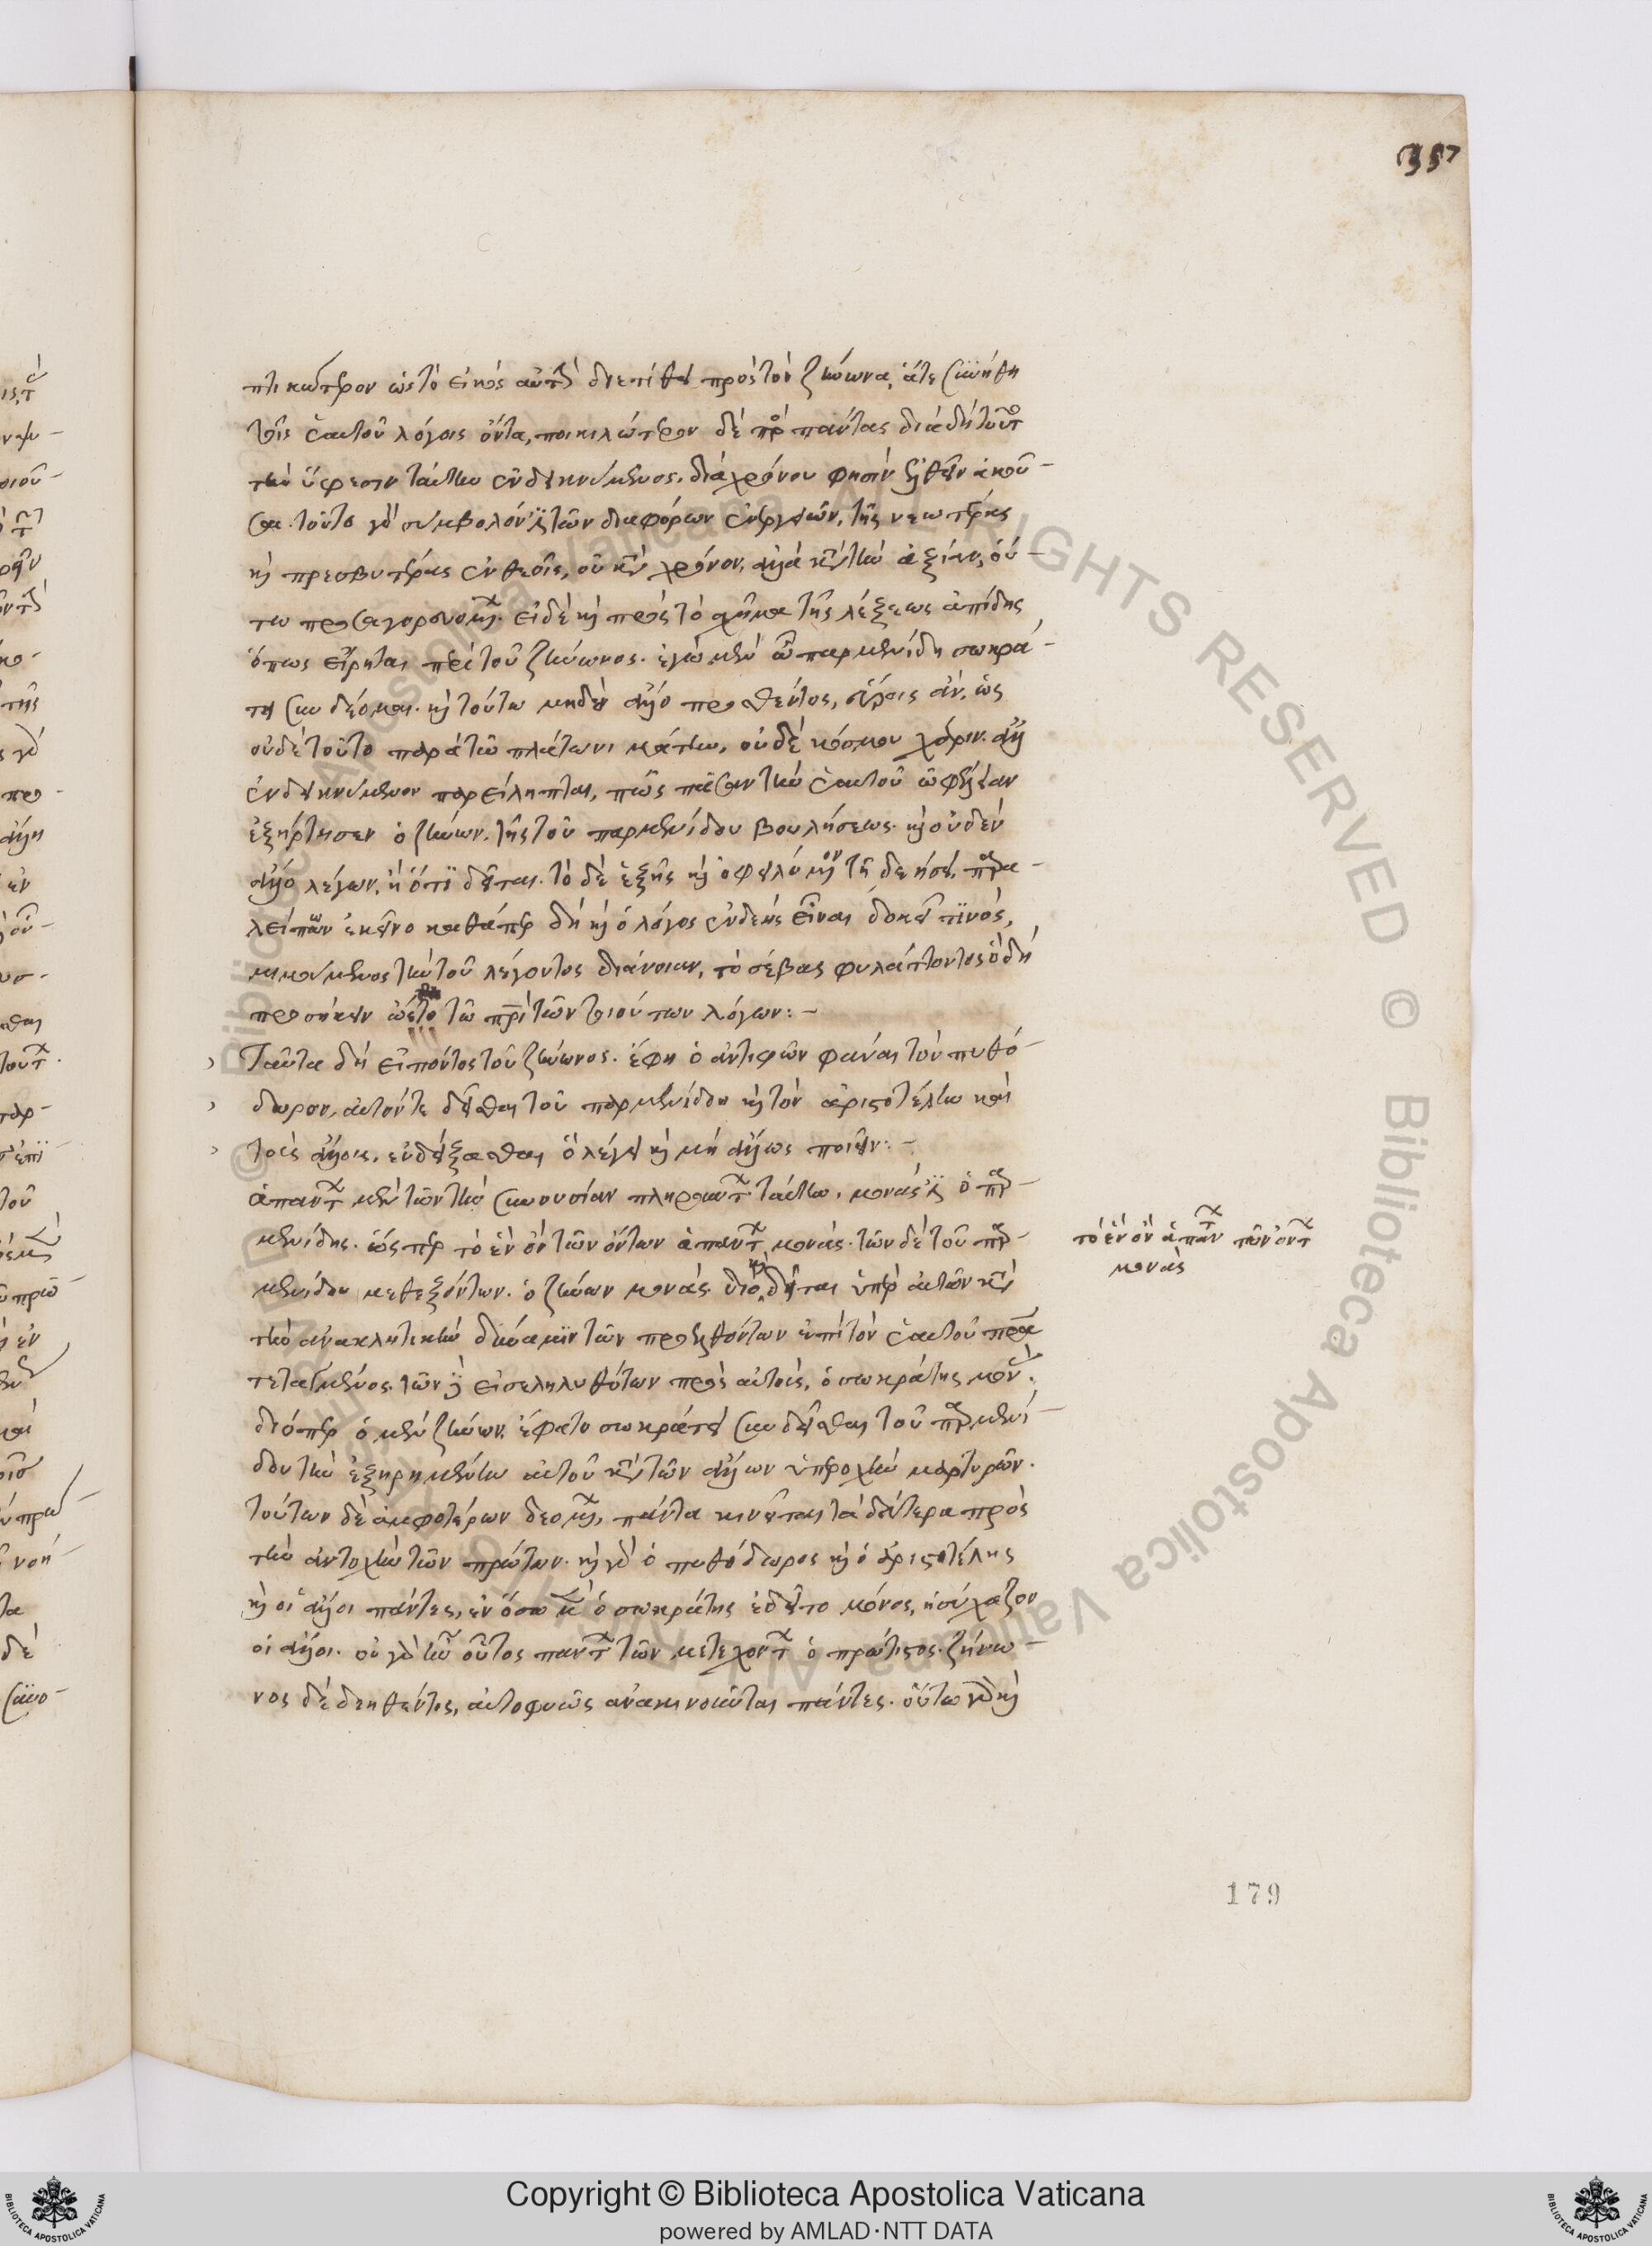 357
πλικώτερον ὡς τὸ εἰκὸς αὐτὸς διετίθει πρὸς τὸν ζήνωνα, ἅτε συνήθη
τοῖς ἑαυτοῦ λόγοις ὄντα, ποικιλώτερον δὲ πρὸς πάντας διὰ δὴ τοῦτο
τὴν ὕφεσιν ταύτην ἐνδεικνύμενος. διὰ χρόνου φησὶν ἐλθεῖν ἀκοῦ-
σαι τοῦτο γὰρ σύμβολόν ἐστι τῶν διαφόρων ἐνεργειῶν, τῆς νεωτέρας
καὶ πρεσβυτέρας ἐν θεοῖς, οὐ κατὰ χρόνον, ἀλλὰ κατὰ τὴν ἀξίαν, οὕ-
τω προσαγορευομένης. εἰ δὲ καὶ πρὸς τὸ σχῆμα τῆς λέξεως ἀπίδης
ὅπως εἴρηται περὶ τοῦ ζήνωνος. ἐγὼ μὲν ὦ παρμενίδη σωκρά-
τει συνδέομαι. καὶ τούτω μηδὲν ἄλλο προσθέντος, εὕροις ἂν, ὡς
οὐδὲ τοῦτο παρὰ τῶ πλάτωνι μάτην, οὐδὲ κόσμου χάριν. ἀλλ'
ἐνδεικνύμενον παρείληπται, πῶς πᾶσαν τὴν ἑαυτοῦ ὠφέλειαν
ἐξήρτησεν ὁ ζήνων. τῆς τοῦ παρμενίδου βουλήσεως. καὶ οὐδὲν
ἄλλο λέγων, ἢ ὅτι δεῖται. τὸ δὲ ἑξῆς καὶ ὀφειλόμενον τῆ δεήσει παρα-
λείπων ἐκεῖνο καθάπερ δὴ καὶ ὁ λόγος ἐνδεὴς εἶναι δοκεῖ τινός,
μιμούμενος τὴν τοῦ λέγοντος διάνοιαν, τὸ σέβας φυλάττοντος ὃ δὴ
προσήκειν ᾤετο τῶ πατρὶ τῶν τοιούτων λόγων:-
Ταῦτα δὴ εἰπόντος τοῦ ζήνωνος. ἔφη ὁ ἀντιφῶν φάναι τὸν πυθό-
δωρον, αὐτόν τε δεῖσθαι τοῦ παρμενίδου καὶ τὸν ἀριστοτέλην καὶ
τοὺς ἄλλους, ἐνδείξασθαι ὃ λέγει καὶ μὴ ἄλλως ποιεῖν:-
ἁπάντων μὲν τῶν τὴν συνουσίαν πληρούντων ταύτην, μονάς ἐστιν ὁ παρ-
μενίδης. ὥς περ τὸ ἓν ὂν τῶν ὄντων ἁπάντων μονάς. τῶν δὲ τοῦ παρ-
μενίδου μεθεξόντων. ὁ ζήνων μονάς. διὸ καὶ δεῖται ὑπὲρ αὐτῶν κατὰ
τὴν ἀνακλητικὴν δύναμιν τῶν προελθόντων ἐπὶ τὸν ἑαυτοῦ πρα
τεταγμένος. τῶν δὲ εἰσεληλυθότων πρὸς αὐτοὺς, ὁ σωκράτης μονάς.
διόπερ ὁ μὲν ζήνων. ἔφατο σωκράτει συνδεῖσθαι τοῦ παρμενί-
δου τὴν ἐξηρημένην αὐτοῦ κατὰ τῶν ἄλλων ὑπεροχὴν μαρτυρῶν.
τούτων δὲ ἀμφοτέρων δεομένων, πάντα κινεῖται τὰ δεύτερα πρὸς
τὴν ἀντοχὴν τῶν πρώτων. καὶ γὰρ ὁ πυθόδωρος καὶ ὁ ἀριστοτέλης
καὶ οἱ ἄλλοι πάντες, ἐν ὅσω μὲν ὁ σωκράτης ἐδεῖτο μόνος, ἡσύχαζον
οἱ ἄλλοι. οὐ γὰρ ἦν οὗτος πάντων τῶν μετεχόντων ὁ πρώτιστος. ζήνω-
νος δὲ δεηθέντος, αὐτοφυῶς ἀνακινοῦνται πάντες. οὕτω γὰρ καὶ
τὸ ἓν ὂν ἁπάντων τῶν ὄντων
μονάς
179
Copyright © Biblioteca Apostolica Vaticana
powered by AMLAD·NTT DATA